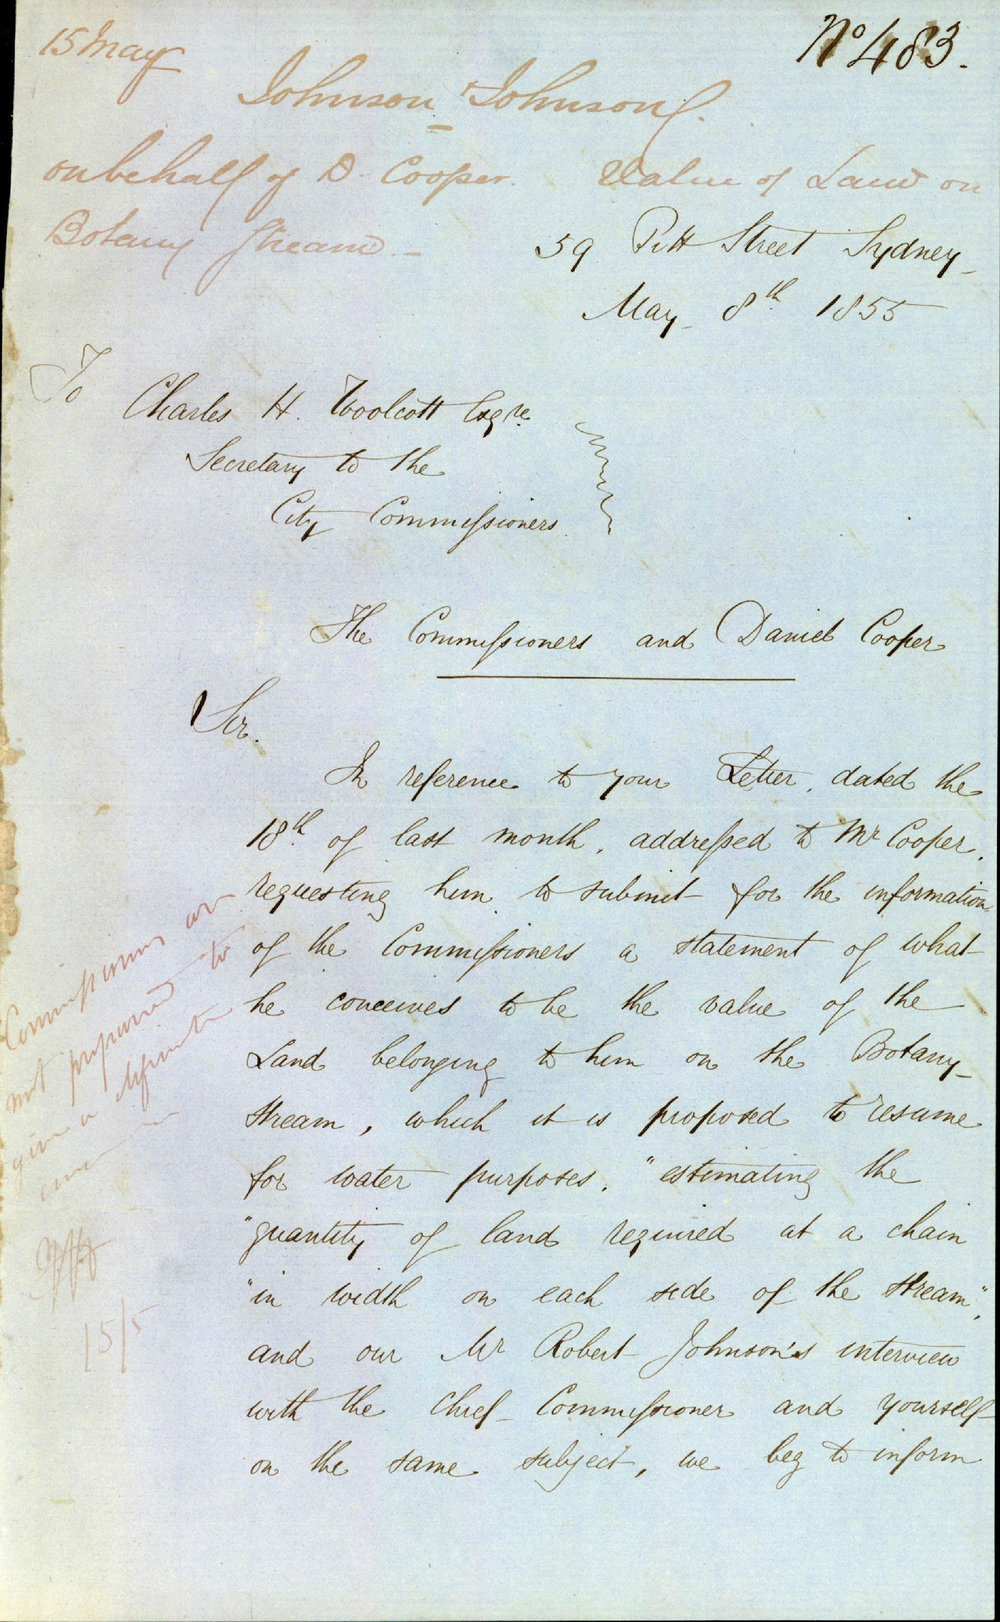 15 May
No 483.
Johnson & Johnson
on behalf of D. Cooper. Value of Land on
Botany Stream -
59 Pitt Street Sydney
May 8th 1855
To
Charles H. Woolcott Esqre
Secretary to the
City Commissioners
The Commissioners and Daniel Cooper
Sir.
In reference to your Letter, dated the
18th of last month, addressed to Mr Cooper,
requesting him to submit for the information
of the Commissioners a statement of what
he conceives to be the value of the
Land belonging to him on the Botany
Stream, which it is proposed to resume
for water purposes, "estimating the
"quantity of land required at a chain
"in width on each side of the Stream",
and our Mr Robert Johnson's interview
with the Chief Commissioner and yourself
on the same subject, we beg to inform
Commissioners are
not prepared to
give a definite
15/5